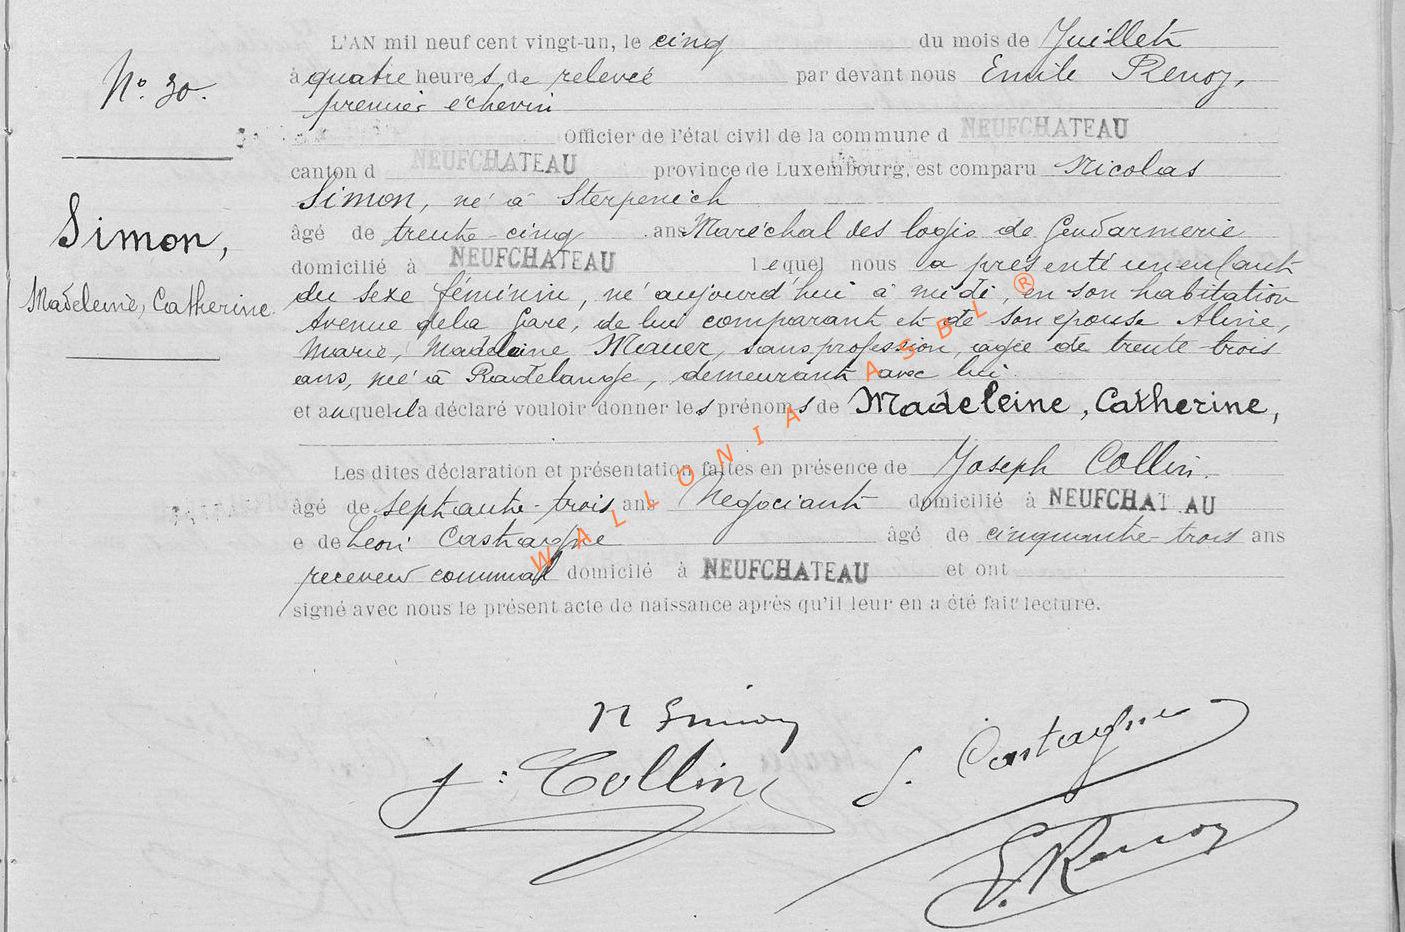 L'AN mil neuf cent vingt-un, le cinq du mois de Juillet
N° 30.
à quatre heures, de relevée par devant nous Emile Renoz,
premier échevin
Officier de l'état civil de la commune d NEUFCHATEAU
canton d NEUFCHATEAU province de Luxembourg, est comparu Nicolas
Simon, né à Sterpenich
Simon,
âgé de trente-cinq ans Maréchal des logis de Gendarmerie
domicilié à NEUFCHATEAU lequel nous a présenté un enfant
Madeleine, Catherine.
du sexe féminin, né aujourd'hui à midi, en son habitation
Avenue de la Gare, de lui comparant et de son épouse Aline,
Marie, Madeleine Meauer, sans profession, agée de trente-trois
ans, née à Radelange, demeurant avec lui.
et auquel il a déclaré vouloir donner les prénoms de Madeleine, Catherine,
Les dites déclaration et présentation faites en présence de Joseph Collin.
âgé de septante-trois ans Négociant domicilié à NEUFCHAT AU
e de Léon Castagne âgé de cinquante-trois ans
receveur communal domicilié à NEUFCHATEAU et ont
signé avec nous le présent acte de naissance après qu'il leur en a été fait lecture.
WALLONIA ASBL ®
N Simon
J. Collin
L. Castagne
E. Renoz